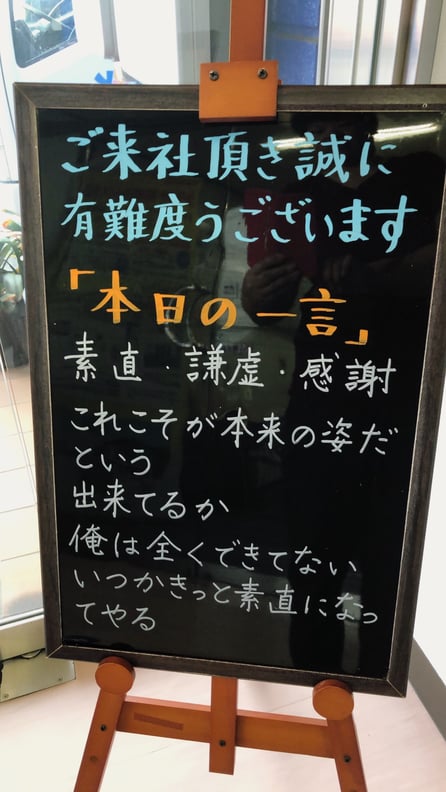 ご来社頂き誠に
有難度うございます
「本日の一言」
素直・謙虚・感謝
これこそが本来の姿だ
という
出来てるか
俺は全くできてない
いつかきっと素直になっ
てやる